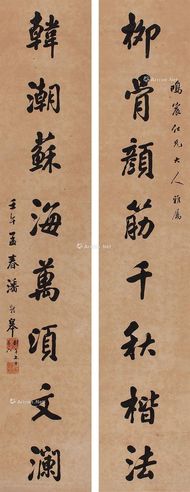 鳴宸仁兄大人雅屬
柳骨顏筋千秋楷法
韓潮蘇海萬頃文瀾
壬午孟春潘